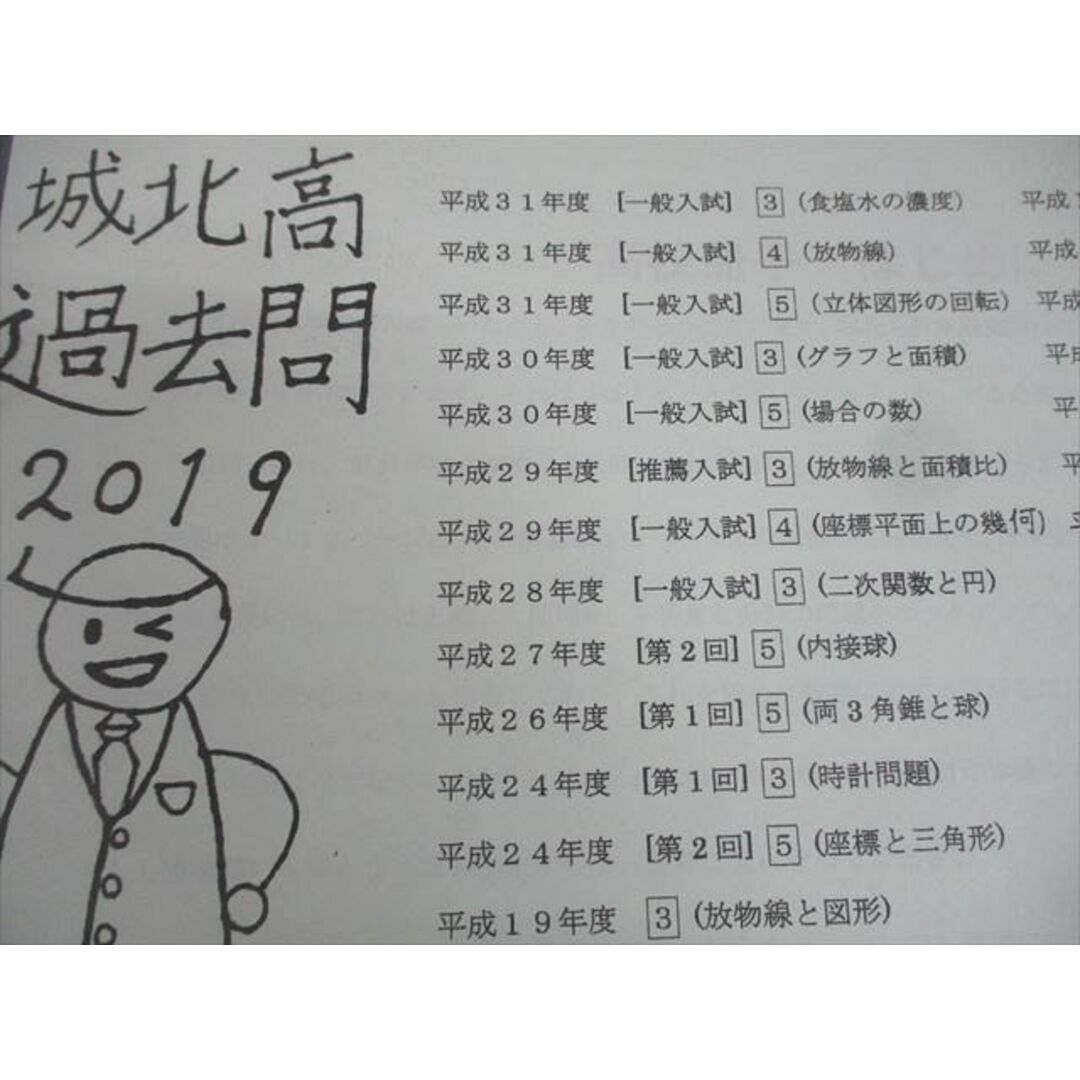 城北高
過去問
2019
平成31年度 [一般入試] 3 (食塩水の濃度) 平成
平成31年度 [一般入試] 4 (放物線) 平成
平成31年度 [一般入試] 5 (立体図形の回転) 平成
平成30年度 [一般入試] 3 (グラフと面積) 平
平成30年度 [一般入試] 5 (場合の数) 平
平成29年度 [推薦入試] 3 (放物線と面積比) 平
平成29年度 [一般入試] 4 (座標平面上の幾何)
平成28年度 [一般入試] 3 (二次関数と円)
平成27年度 [第2回] 5 (内接球)
平成26年度 [第1回] 5 (両3角錐と球)
平成24年度 [第1回] 3 (時計問題)
平成24年度 [第2回] 5 (座標と三角形)
平成19年度 3 (放物線と図形)